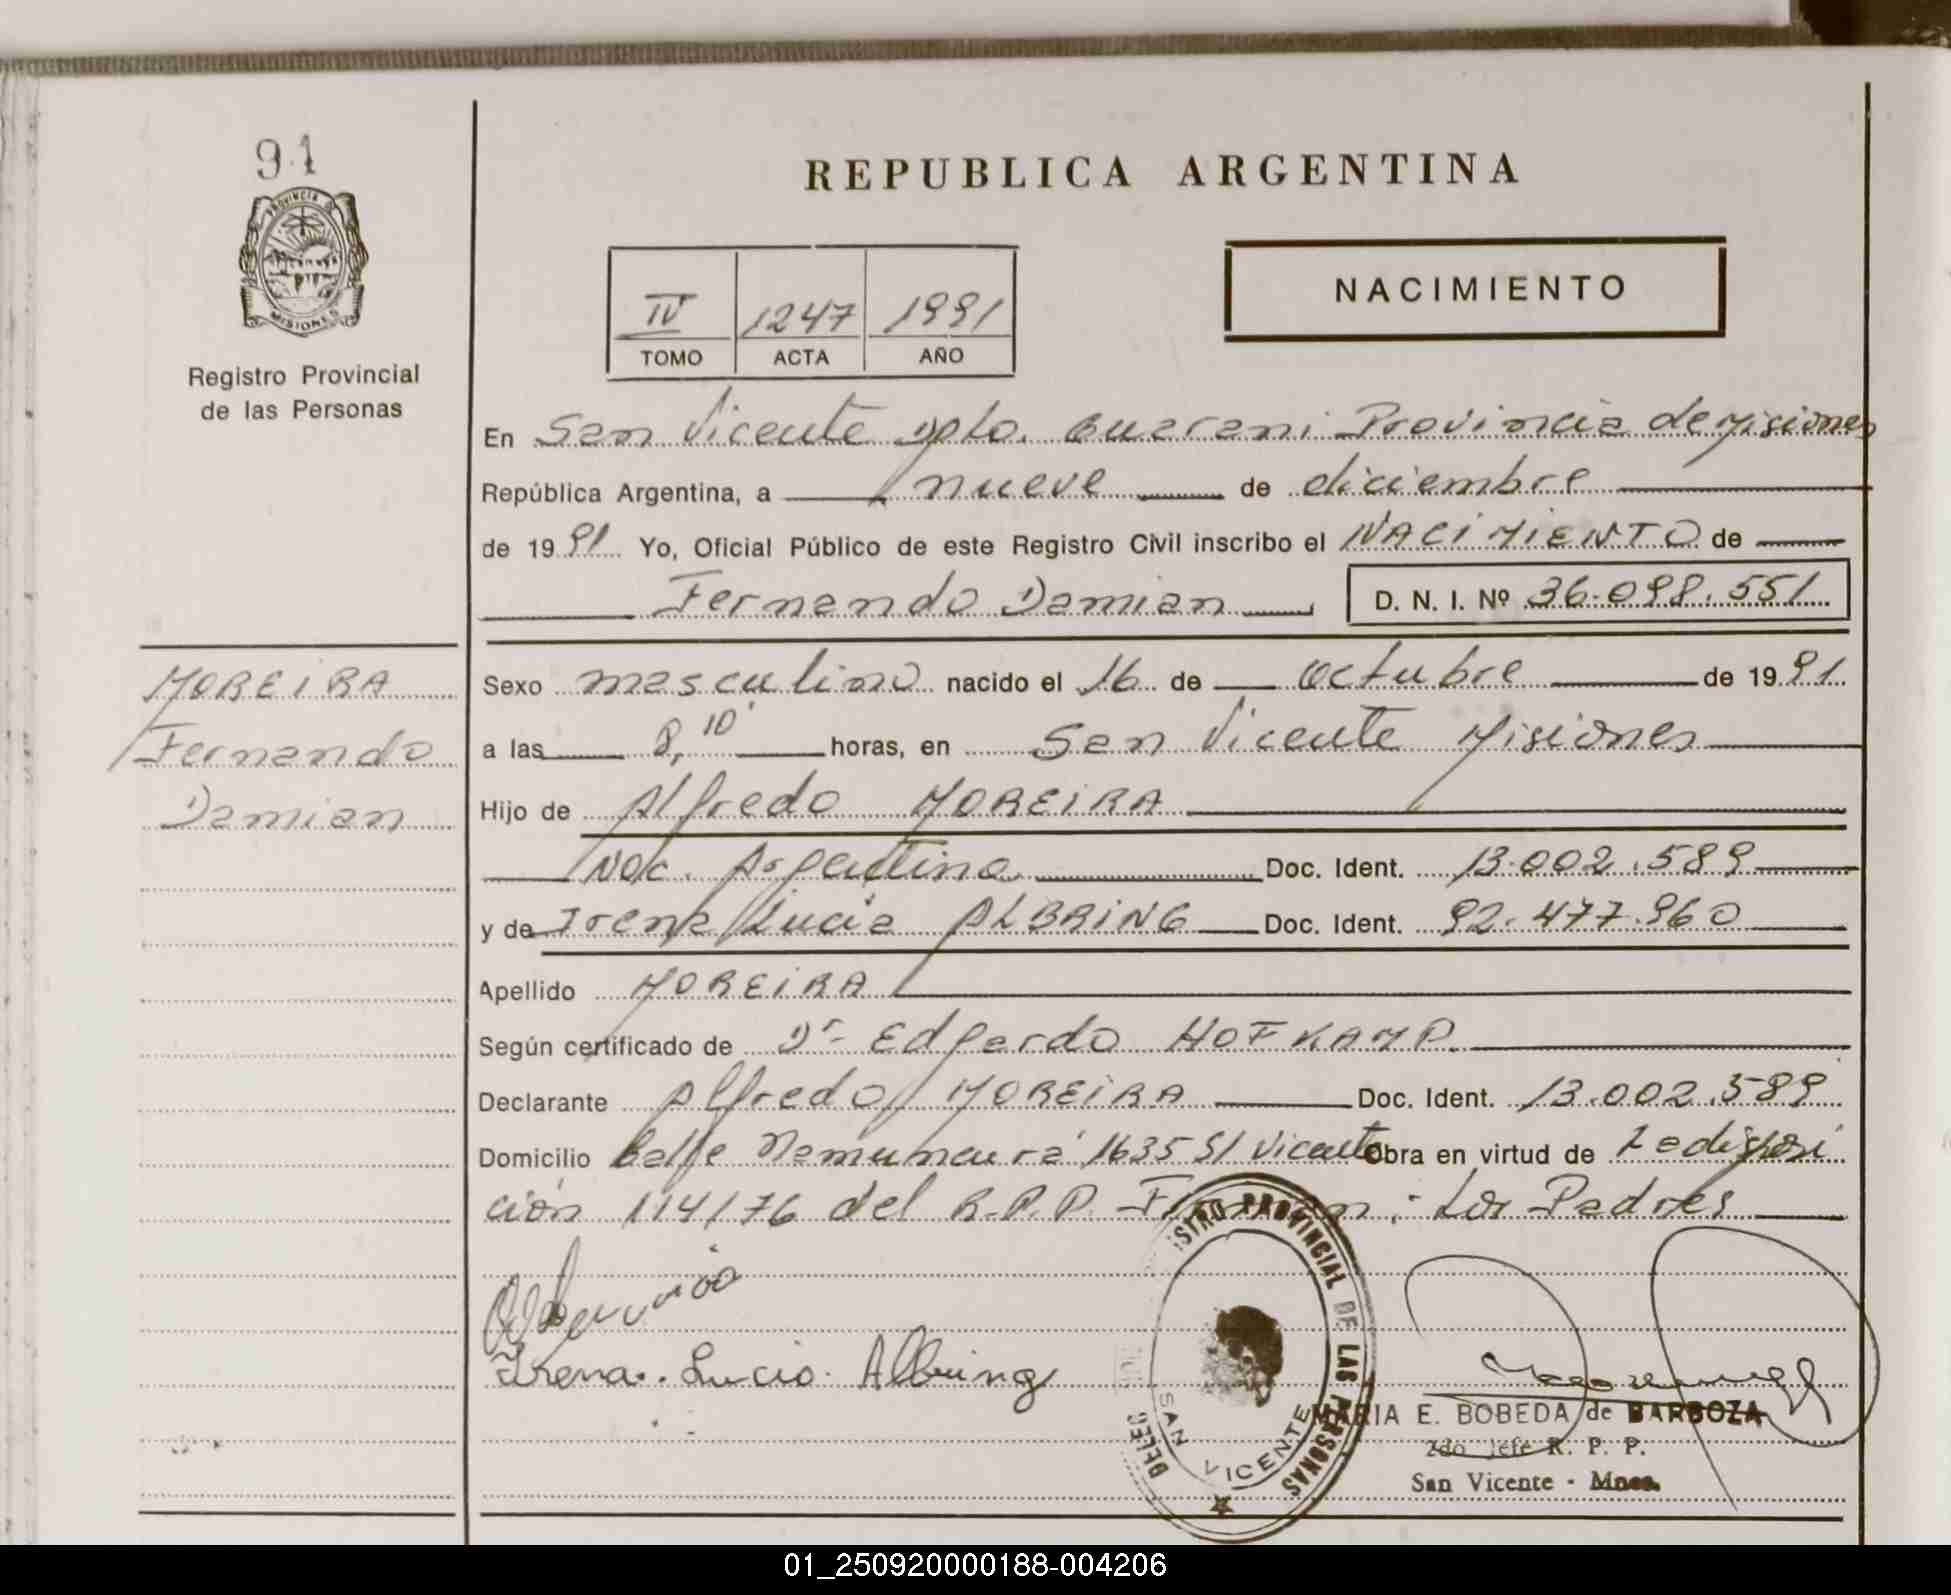 91
PROVINCIA DE
MISIONES
Registro Provincial
de las Personas
MOREIRA
Fernando
Damian
REPUBLICA ARGENTINA
IV 1247 1991
TOMO ACTA AÑO
NACIMIENTO
En San Vicente Dpto. Guarani Provincia de Misiones
República Argentina, a nueve de diciembre
de 1991 Yo, Oficial Público de este Registro Civil inscribo el NACIMIENTO de
Fernando Damian D. N. I. Nº 36.098.551
Sexo masculino nacido el 16 de octubre de 1991
a las 8,10' horas, en San Vicente Misiones
Hijo de Alfredo MOREIRA
Nac. Argentina Doc. Ident. 13.002.589
y de Irena Lucia ALBRING Doc. Ident. 92.477.960
Apellido MOREIRA
Según certificado de Dr. Edgardo HOFKAMP.
Declarante Alfredo MOREIRA Doc. Ident. 13.002.589
Domicilio Calle Namumcurá 1635 S/ Vicente Obra en virtud de La disposi
ción 114/76 del R.P.P. Firman: Los Padres
Irena. Lucia Albring
REGISTRO PROVINCIAL DE LAS PERSONAS
DELEG
SAN VICENTE
MARIA E. BOBEDA de BARBOZA
2do Jefe R. P. P.
San Vicente - Mnes.
01_250920000188-004206